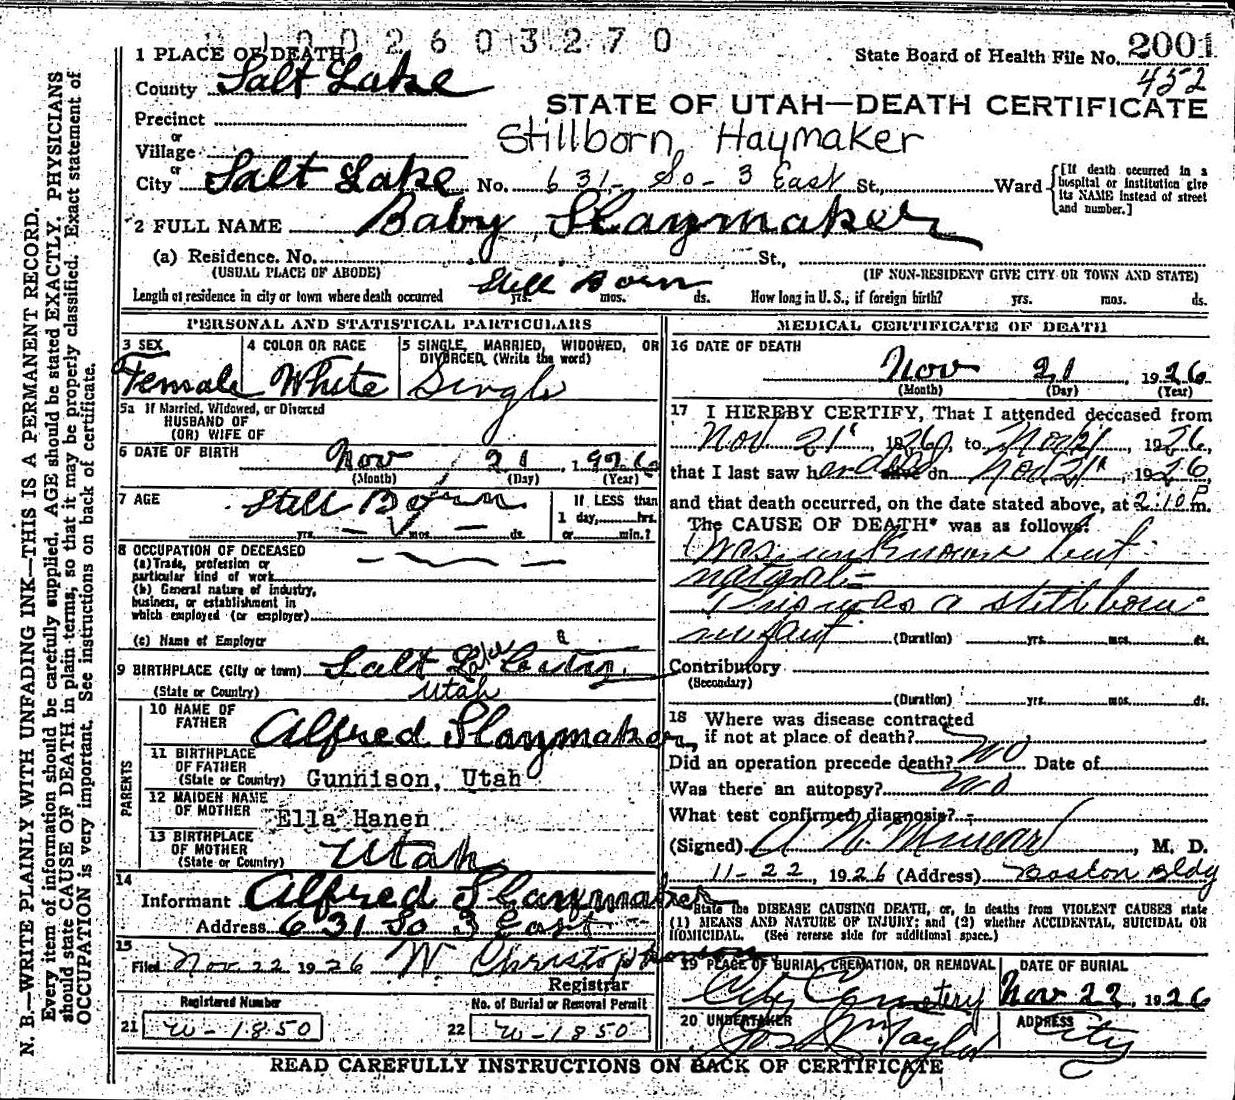 1002603270
1 PLACE OF DEATH
State Board of Health File No. 2001
452
County Salt Lake
STATE OF UTAH—DEATH CERTIFICATE
Precinct
Stillborn Haymaker
or
Village
or
City Salt Lake No. 631 So - 3 East St., Ward
[If death occurred in a hospital or institution give its NAME instead of street and number.]
2 FULL NAME Baby Slaymaker
(a) Residence. No. St.,
(USUAL PLACE OF ABODE) (IF NON-RESIDENT GIVE CITY OR TOWN AND STATE)
Still Born
Length of residence in city or town where death occurred yrs. mos. ds. How long in U.S., if foreign birth? yrs. mos. ds.
PERSONAL AND STATISTICAL PARTICULARS
3 SEX 4 COLOR OR RACE 5 SINGLE, MARRIED, WIDOWED, OR DIVORCED, (Write the word)
Female White Single
5a If Married, Widowed, or Divorced
HUSBAND OF
(OR) WIFE OF
6 DATE OF BIRTH Nov 21, 1926
(Month) (Day) (Year)
7 AGE Still Born
yrs. mos. ds.
If LESS than
1 day, hrs.
or min.?
8 OCCUPATION OF DECEASED
(a) Trade, profession or
particular kind of work
(b) General nature of industry,
business, or establishment in
which employed (or employer)
(c) Name of Employer
9 BIRTHPLACE (City or town) Salt Lake City
(State or Country) Utah
PARENTS
10 NAME OF
FATHER Alfred Slaymaker
11 BIRTHPLACE
OF FATHER
(State or Country) Gunnison, Utah
12 MAIDEN NAME
OF MOTHER Ella Hanen
13 BIRTHPLACE
OF MOTHER
(State or Country) Utah
14
Informant Alfred Slaymaker
Address 631 So 3 East
15
Filed Nov 22 1926 W. Christopherson
Registrar
Registered Number No. of Burial or Removal Permit
21 W-1850 22 W-1850
MEDICAL CERTIFICATE OF DEATH
16 DATE OF DEATH
Nov 21, 1926
(Month) (Day) (Year)
17 I HEREBY CERTIFY, That I attended deceased from
Nov 21, 1926, to Nov 21, 1926,
that I last saw her alive on Nov 21, 1926
and that death occurred, on the date stated above, at 2:10 P m.
The CAUSE OF DEATH* was as follows:
was unknown but
natural—
This was a stillborn
infant (Duration) yrs. mos. ds.
Contributory
(Secondary)
(Duration) yrs. mos. ds.
18 Where was disease contracted
if not at place of death?
Did an operation precede death? No Date of
Was there an autopsy? No
What test confirmed diagnosis?
(Signed) A N, M. D.
11-22, 1926 (Address) Boston Bldg
*State the DISEASE CAUSING DEATH, or, in deaths from VIOLENT CAUSES state
(1) MEANS AND NATURE OF INJURY; and (2) whether ACCIDENTAL, SUICIDAL OR
HOMICIDAL. (See reverse side for additional space.)
19 PLACE OF BURIAL, CREMATION, OR REMOVAL DATE OF BURIAL
City Cemetery Nov 22, 1926
20 UNDERTAKER ADDRESS
Taylor City
READ CAREFULLY INSTRUCTIONS ON BACK OF CERTIFICATE
N. B.—WRITE PLAINLY WITH UNFADING INK—THIS IS A PERMANENT RECORD.
Every item of information should be carefully supplied. AGE should be stated EXACTLY. PHYSICIANS
should state CAUSE OF DEATH in plain terms, so that it may be properly classified. Exact statement of
OCCUPATION is very important. See instructions on back of certificate.